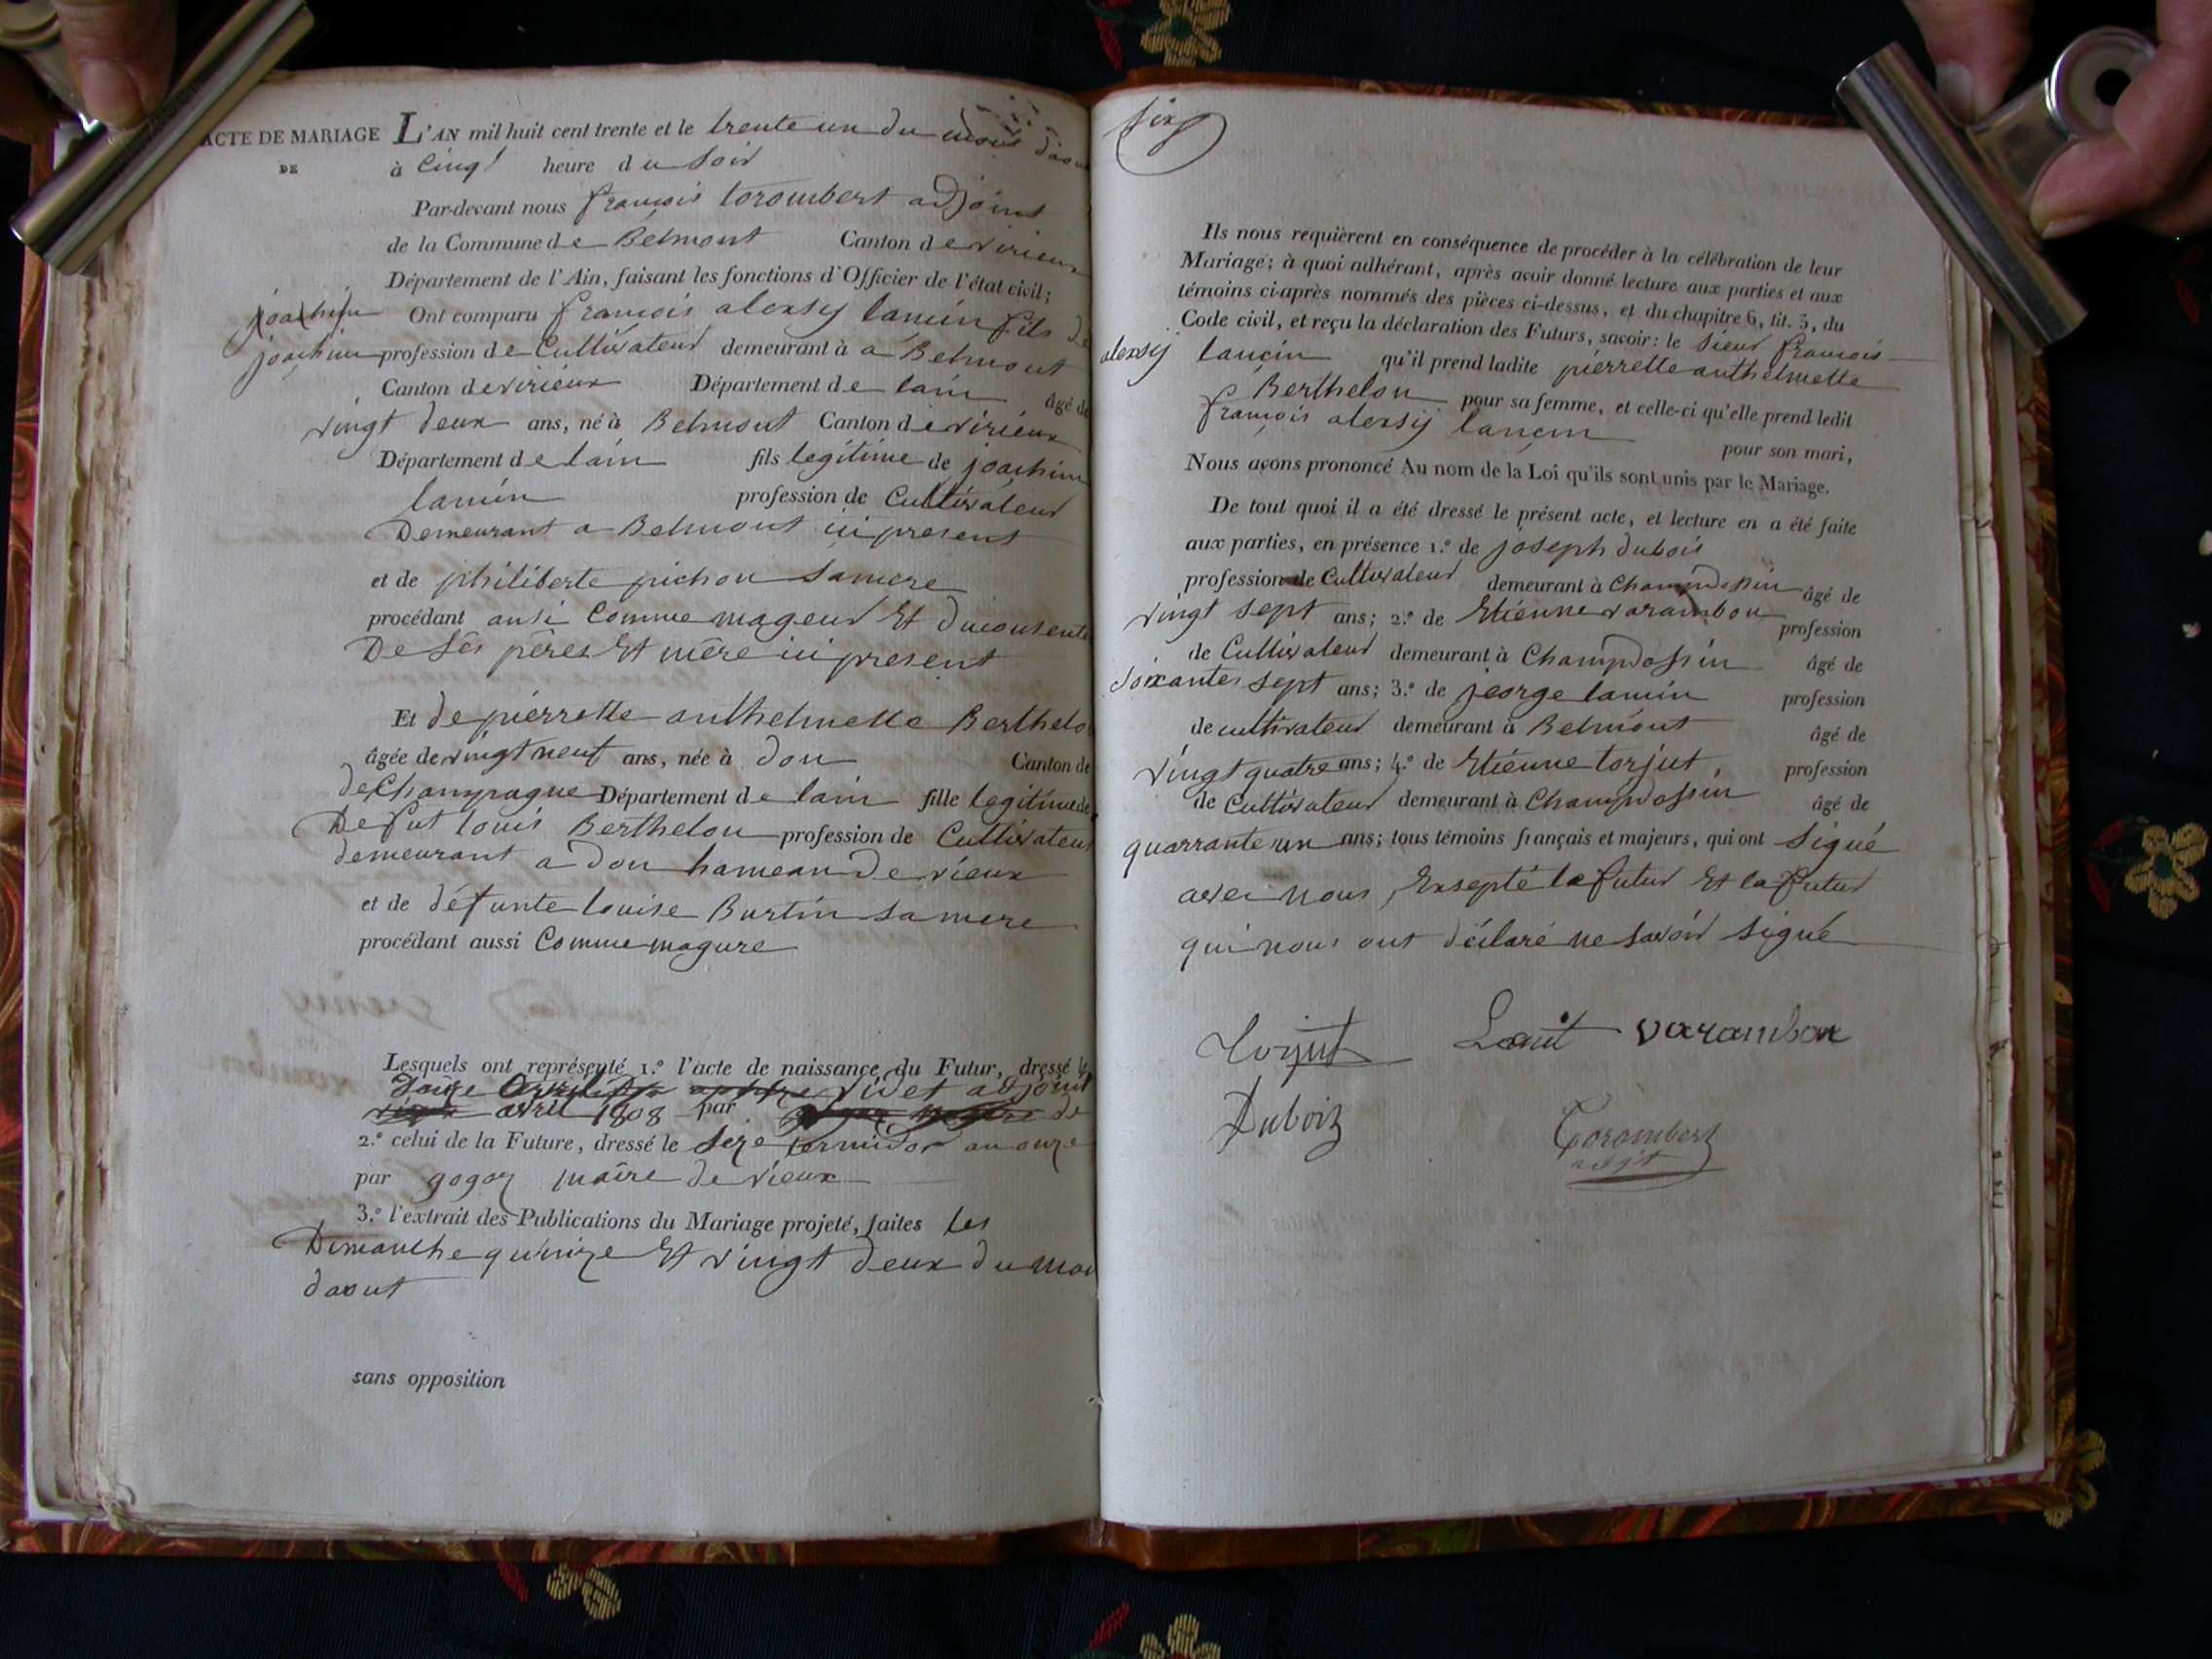 ACTE DE MARIAGE
DE
L'AN mil huit cent trente et le trente un du mois daout
à Cinq heure du Soir
Par-devant nous françois torombert adjoint
de la Commune de Belmont Canton de virieux
Département de l'Ain, faisant les fonctions d'Officier de l'état civil;
joachim
joachim
Ont comparu françois alexsij lancin fils de
profession de Cultivateur demeurant à a Belmont
Canton de virieux Département de lain âgé de
vingt deux ans, né à Belmont Canton de virieux
Département de lain fils legitime de joachim
lancin profession de Cultivateur
Demeurant a Belmont ici present
et de philiberte pichon samere
procédant ausi Comme mageur Et du consente
De Sês pêres Et mêre ici present
Et de pierrette anthelmette Berthelo
âgée de vingt neuf ans, née à don Canton de
de Champagne Département de lain fille legitime de
Defut louis Berthelon profession de Cultivateur
demeurant a don hameau de vieux
et de défunte louise Burtin samere
procédant aussi Comme magure
Lesquels ont représenté 1.° l'acte de naissance du Futur, dressé le
avril 1808 par rivet adjoint de
2.° celui de la Future, dressé le Seze termidor an onze
par gogoz maire de vieux
3.° l'extrait des Publications du Mariage projeté, faites les
Dimanche quinze Et vingt deux du moi
daout
sans opposition
six
Ils nous requièrent en conséquence de procéder à la célébration de leur
Mariage; à quoi adhérant, après avoir donné lecture aux parties et aux
témoins ci-après nommés des pièces ci-dessus, et du chapitre 6, tit. 5, du
Code civil, et reçu la déclaration des Futurs, savoir: le sieur françois
alexsij lancin qu'il prend ladite pierrette anthelmette
Berthelon pour sa femme, et celle-ci qu'elle prend ledit
françois alexsij lancin pour son mari,
Nous avons prononcé Au nom de la Loi qu'ils sont unis par le Mariage.
De tout quoi il a été dressé le présent acte, et lecture en a été faite
aux parties, en présence 1.° de joseph dubois
profession de Cultivateur demeurant à Champdossin âgé de
vingt sept ans; 2.° de Etienne varambon profession
de Cultivateur demeurant à Champdossin âgé de
soixantes sept ans; 3.° de jeorge lancin profession
de cultivateur demeurant à Belmont âgé de
vingt quatre ans; 4.° de Etienne torjut, profession
de Cultivateur demeurant à Champdossin âgé de
quarrante un ans; tous témoins français et majeurs, qui ont Signé
avec nous, Exsepté le futur Et la futur
qui nous ont déclaré ne savoir signé
torjut varambon
Duboiz
torombert
adjt